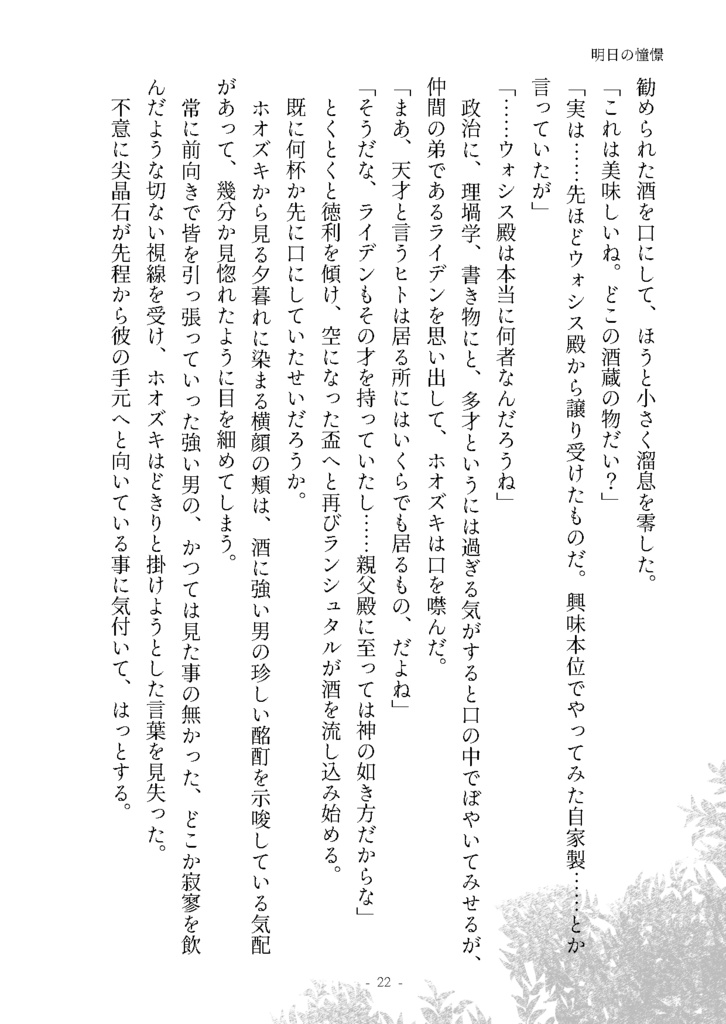 明日の憧憬
勧められた酒を口にして、ほうと小さく溜息を零した。
「これは美味しいね。どこの酒蔵の物だい？」
「実は……先ほどウォシス殿から譲り受けたものだ。興味本位でやってみた自家製……とか
言っていたが」
「……ウォシス殿は本当に何者なんだろうね」
政治に、理堝学、書き物にと、多才というには過ぎる気がすると口の中でぼやいてみせるが、
仲間の弟であるライデンを思い出して、ホオズキは口を噤んだ。
「まあ、天才と言うヒトは居る所にはいくらでも居るもの、だよね」
「そうだな、ライデンもその才を持っていたし……親父殿に至っては神の如き方だからな」
とくとくと徳利を傾け、空になった盃へと再びランシュタルが酒を流し込み始める。
既に何杯か先に口にしていたせいだろうか。
ホオズキから見る夕暮れに染まる横顔の頬は、酒に強い男の珍しい酩酊を示唆している気配
があって、幾分か見惚れたように目を細めてしまう。
常に前向きで皆を引っ張っていった強い男の、かつては見た事の無かった、どこか寂寥を飲
んだような切ない視線を受け、ホオズキはどきりと掛けようとした言葉を見失った。
不意に尖晶石が先程から彼の手元へと向いている事に気付いて、はっとする。
- 22 -